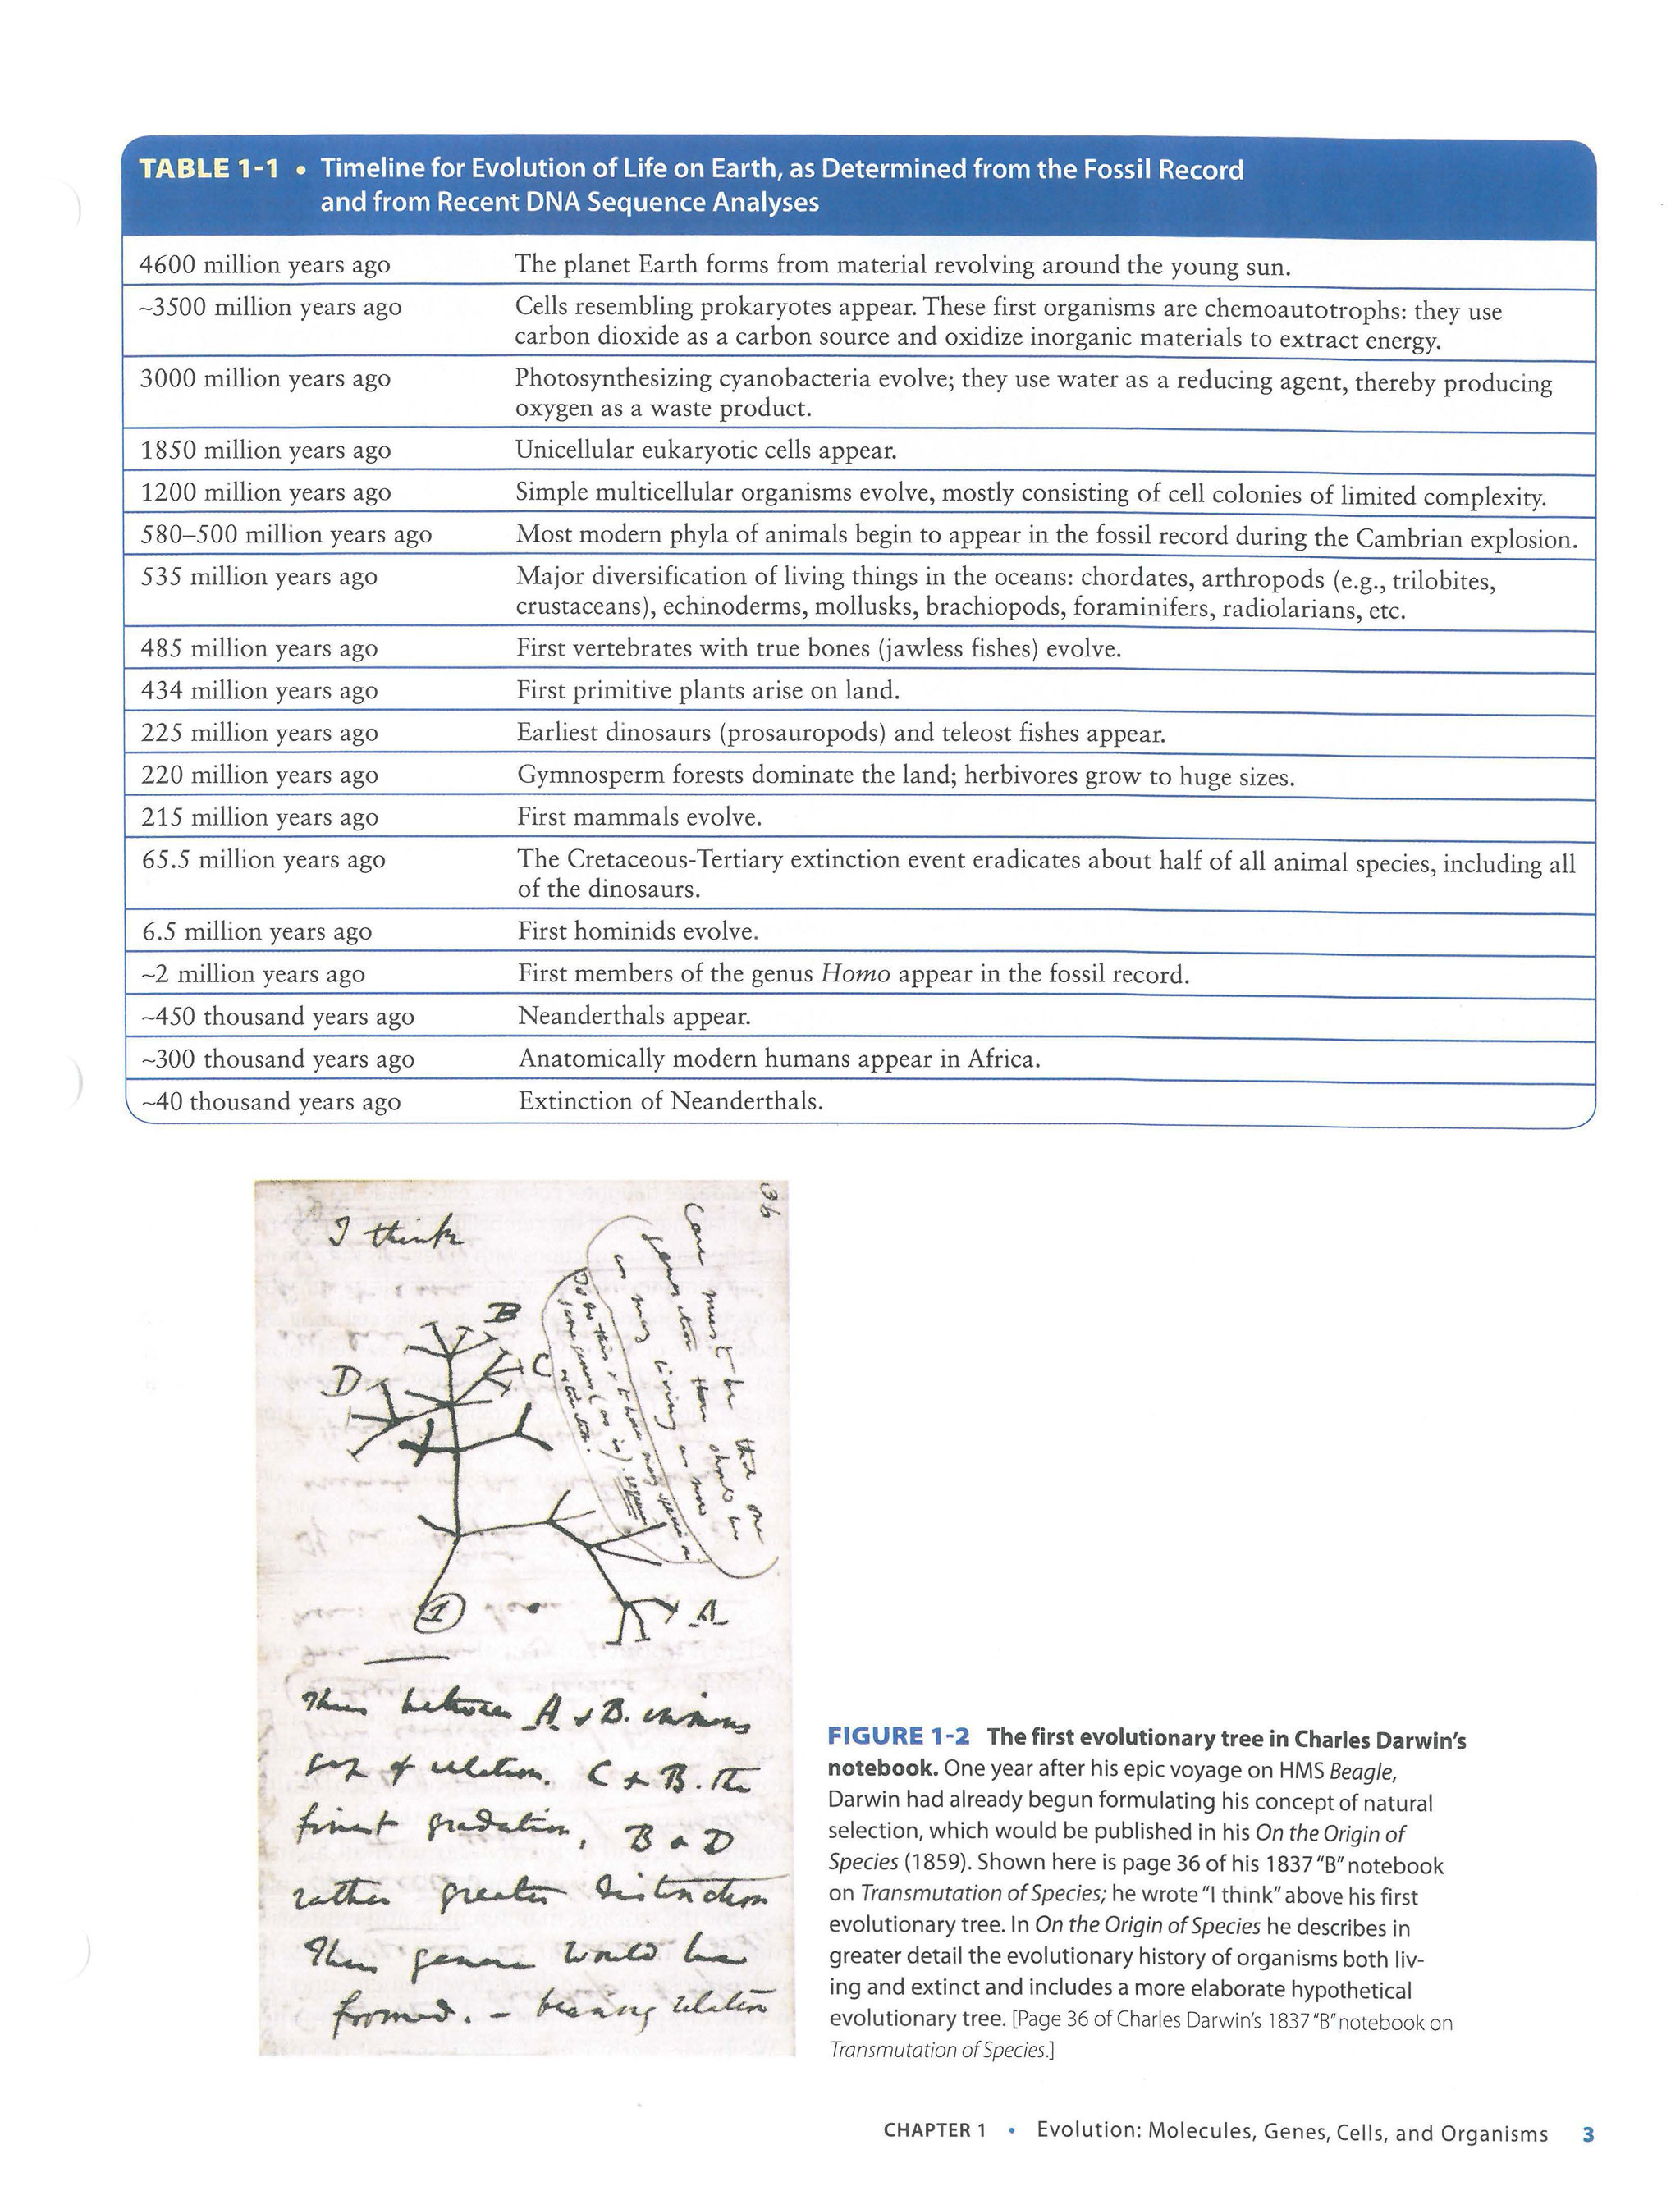 TABLE 1-1 • Timeline for Evolution of Life on Earth, as Determined from the Fossil Record
and from Recent DNA Sequence Analyses
4600 million years ago The planet Earth forms from material revolving around the young sun.
~3500 million years ago Cells resembling prokaryotes appear. These first organisms are chemoautotrophs: they use
carbon dioxide as a carbon source and oxidize inorganic materials to extract energy.
3000 million years ago Photosynthesizing cyanobacteria evolve; they use water as a reducing agent, thereby producing
oxygen as a waste product.
1850 million years ago Unicellular eukaryotic cells appear.
1200 million years ago Simple multicellular organisms evolve, mostly consisting of cell colonies of limited complexity.
580–500 million years ago Most modern phyla of animals begin to appear in the fossil record during the Cambrian explosion.
535 million years ago Major diversification of living things in the oceans: chordates, arthropods (e.g., trilobites,
crustaceans), echinoderms, mollusks, brachiopods, foraminifers, radiolarians, etc.
485 million years ago First vertebrates with true bones (jawless fishes) evolve.
434 million years ago First primitive plants arise on land.
225 million years ago Earliest dinosaurs (prosauropods) and teleost fishes appear.
220 million years ago Gymnosperm forests dominate the land; herbivores grow to huge sizes.
215 million years ago First mammals evolve.
65.5 million years ago The Cretaceous-Tertiary extinction event eradicates about half of all animal species, including all
of the dinosaurs.
6.5 million years ago First hominids evolve.
~2 million years ago First members of the genus Homo appear in the fossil record.
~450 thousand years ago Neanderthals appear.
~300 thousand years ago Anatomically modern humans appear in Africa.
~40 thousand years ago Extinction of Neanderthals.
36
I think
Case must be that one
generation then should be
as many living as now
To do this & to have many species in
same genus (as is) requires
extinction.
B
C
D
A
1
Thus between A & B. immense
gap of relation. C & B. The
finest gradation, B & D
rather greater distinction
Thus genera would be
formed. — bearing relation
FIGURE 1-2 The first evolutionary tree in Charles Darwin's
notebook. One year after his epic voyage on HMS Beagle,
Darwin had already begun formulating his concept of natural
selection, which would be published in his On the Origin of
Species (1859). Shown here is page 36 of his 1837 "B" notebook
on Transmutation of Species; he wrote "I think" above his first
evolutionary tree. In On the Origin of Species he describes in
greater detail the evolutionary history of organisms both liv-
ing and extinct and includes a more elaborate hypothetical
evolutionary tree. [Page 36 of Charles Darwin's 1837 "B" notebook on
Transmutation of Species.]
CHAPTER 1 • Evolution: Molecules, Genes, Cells, and Organisms 3